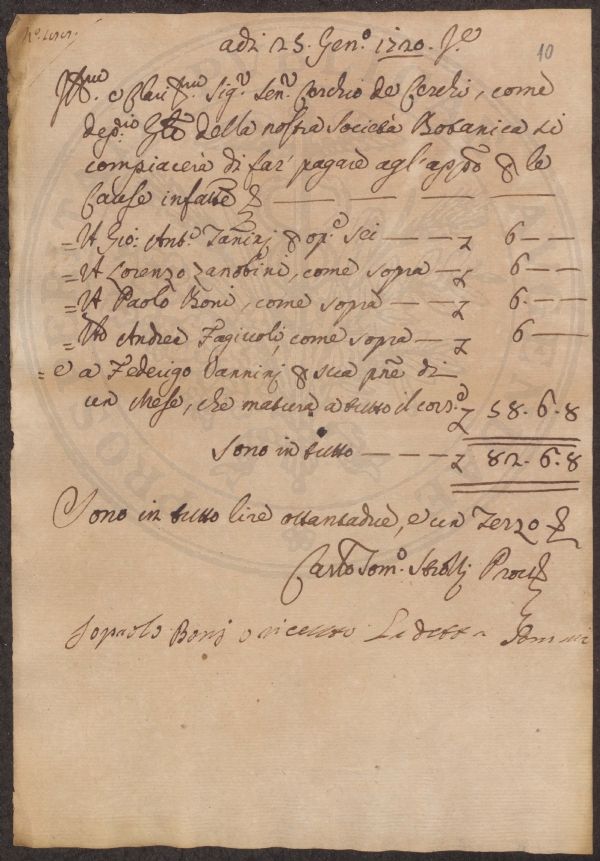 adi 25. Gen.º 1720. J.e
10
Ill.mo e Clari.mo Sig.r Sen.r Cerchio de Cerchi, come
dep.rio G.le della nostra Società Botanica si
compiacerà di far' pagare agl'app.ti p le
Cause infatte p
= A Gio: Ant.º Tanini p op.e sei — z 6 —
= A Lorenzo Zanobini, come sopra — z 6 —
= A Paolo Boni, come sopra — z 6 —
= Ad Andrea Fagiuoli, come sopra — z 6 —
= e a Federigo Vannini p sua pne di
un Mese, che matura a tutto il corr.e z 58. 6. 8
Sono in tutto — z 82. 6. 8
Sono in tutto lire ottantadue, e un Terzo
Carlo Tom.º Strozzi Prov.
Io paolo Boni o riceuto La detta Somma